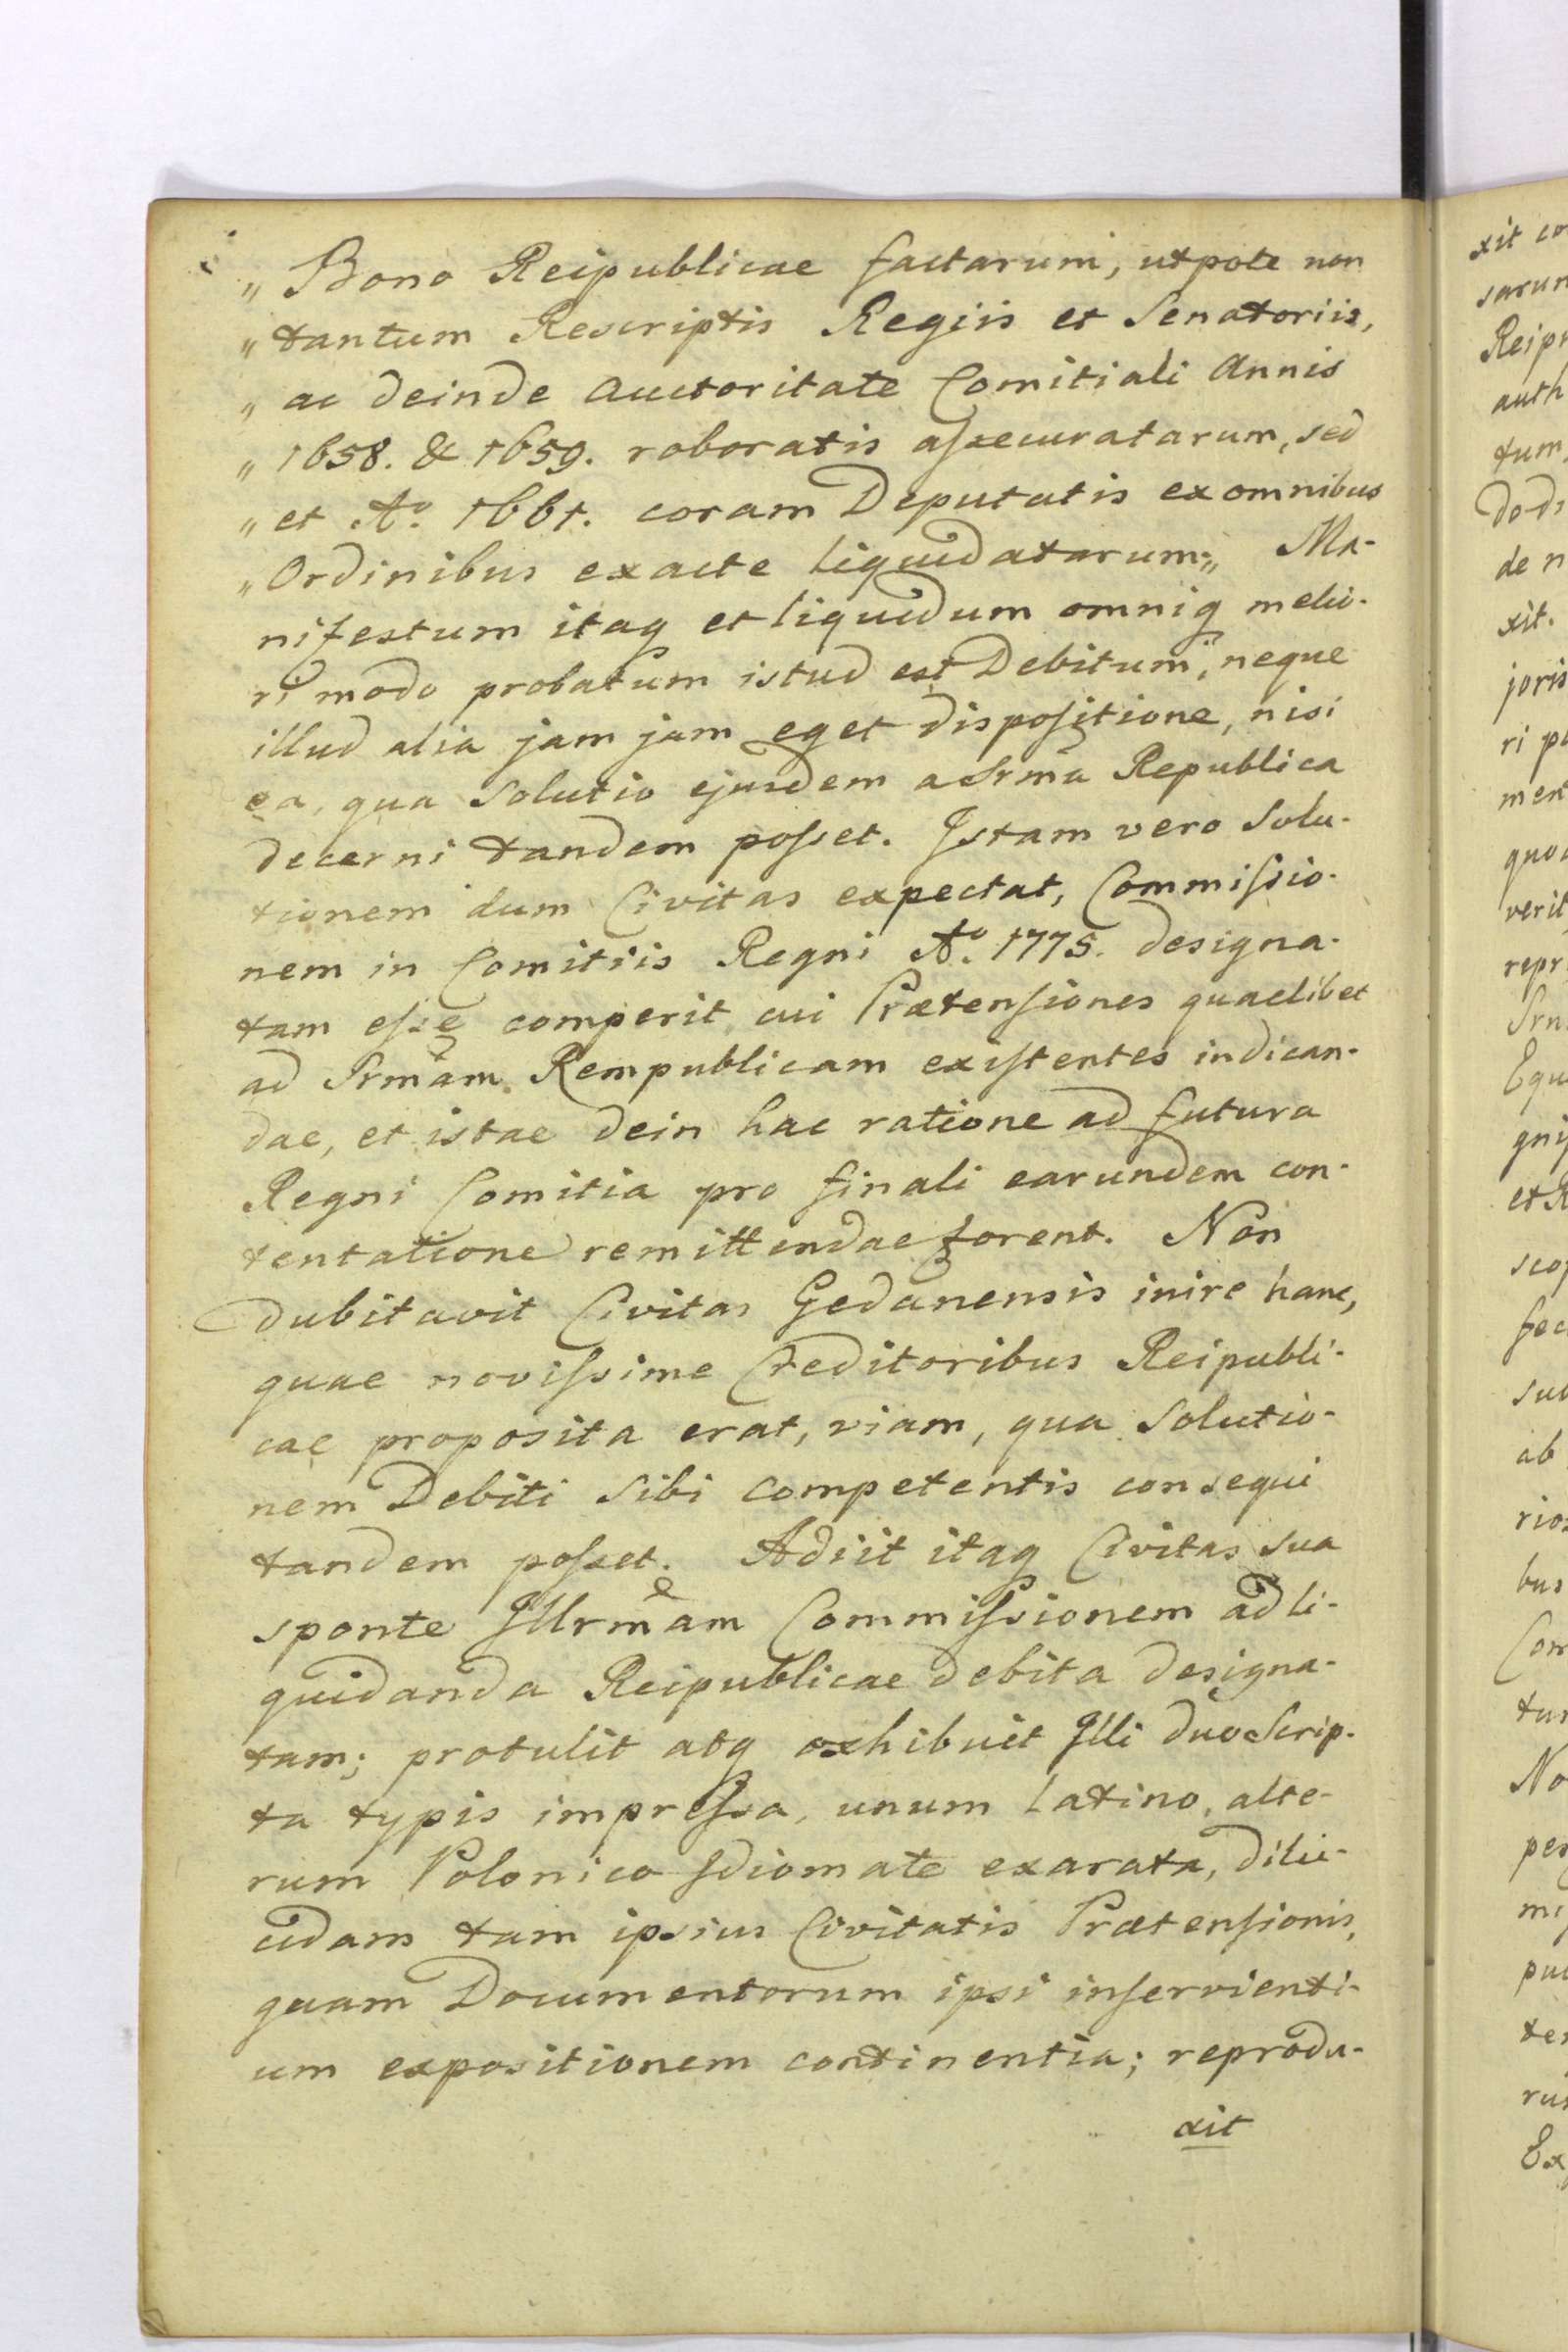 „ Bono Reipublicae factarum, utpote non
„ tantum Rescriptis Regiis et Senatoriis,
„ ac deinde auctoritate Comitiali Annis
„ 1658. & 1659. roboratis aſsecuratarum, sed
„ et Aº. 1661. coram Deputatis ex omnibus
„ Ordinibus exacte liquidatarum;„ Ma-
nifestum itaq et liquidum omniq melio-
ri modo probatum istud est Debitum, neque
illud alia jam jam eget dispoſitione, nisi
ea, qua Solutio ejusdem a Srmã Republica
decerni tandem poſset. Istam vero Solu-
tionem dum Civitas expectat, Commiſsio-
nem in Comitiis Regni Aº. 1775. designa-
tam eſse comperit, cui Prætenſiones quaelibet
ad Srmãm Rempublicam exiſtentes indican-
dae, et istae dein hac ratione ad futura
Regni Comitia pro finali earundem con-
tentatione remittendae forent. Non
dubitavit Civitas Gedanensis inire hanc,
quae noviſsime Creditoribus Reipubli-
cae proposita erat, viam, qua Solutio-
nem Debiti Sibi competentis consequi
tandem poſset. Adiit itaq Civitas sua
sponte Illrmãm Commiſsionem ad li-
quidanda Reipublicae debita designa-
tam; protulit atq exhibuit Illi duo Scrip-
ta typis impreſsa, unum Latino, alte-
rum Polonico Idiomate exarata, dilu-
cidam tam ipsius Civitatis Prætenſionis,
quam Documentorum ipsi inſervienti-
um expositionem continentia; reprodu-
xit
xit co
sarum
Reip
auth
tum
do d
de n
xit.
joris
ri p
men
quo
verit
repr
Srm
Equ
gni
et R
sco
fec
sub
ab
rio
bus
Com
tur
No
per
mi
pu
te
rus
Ex